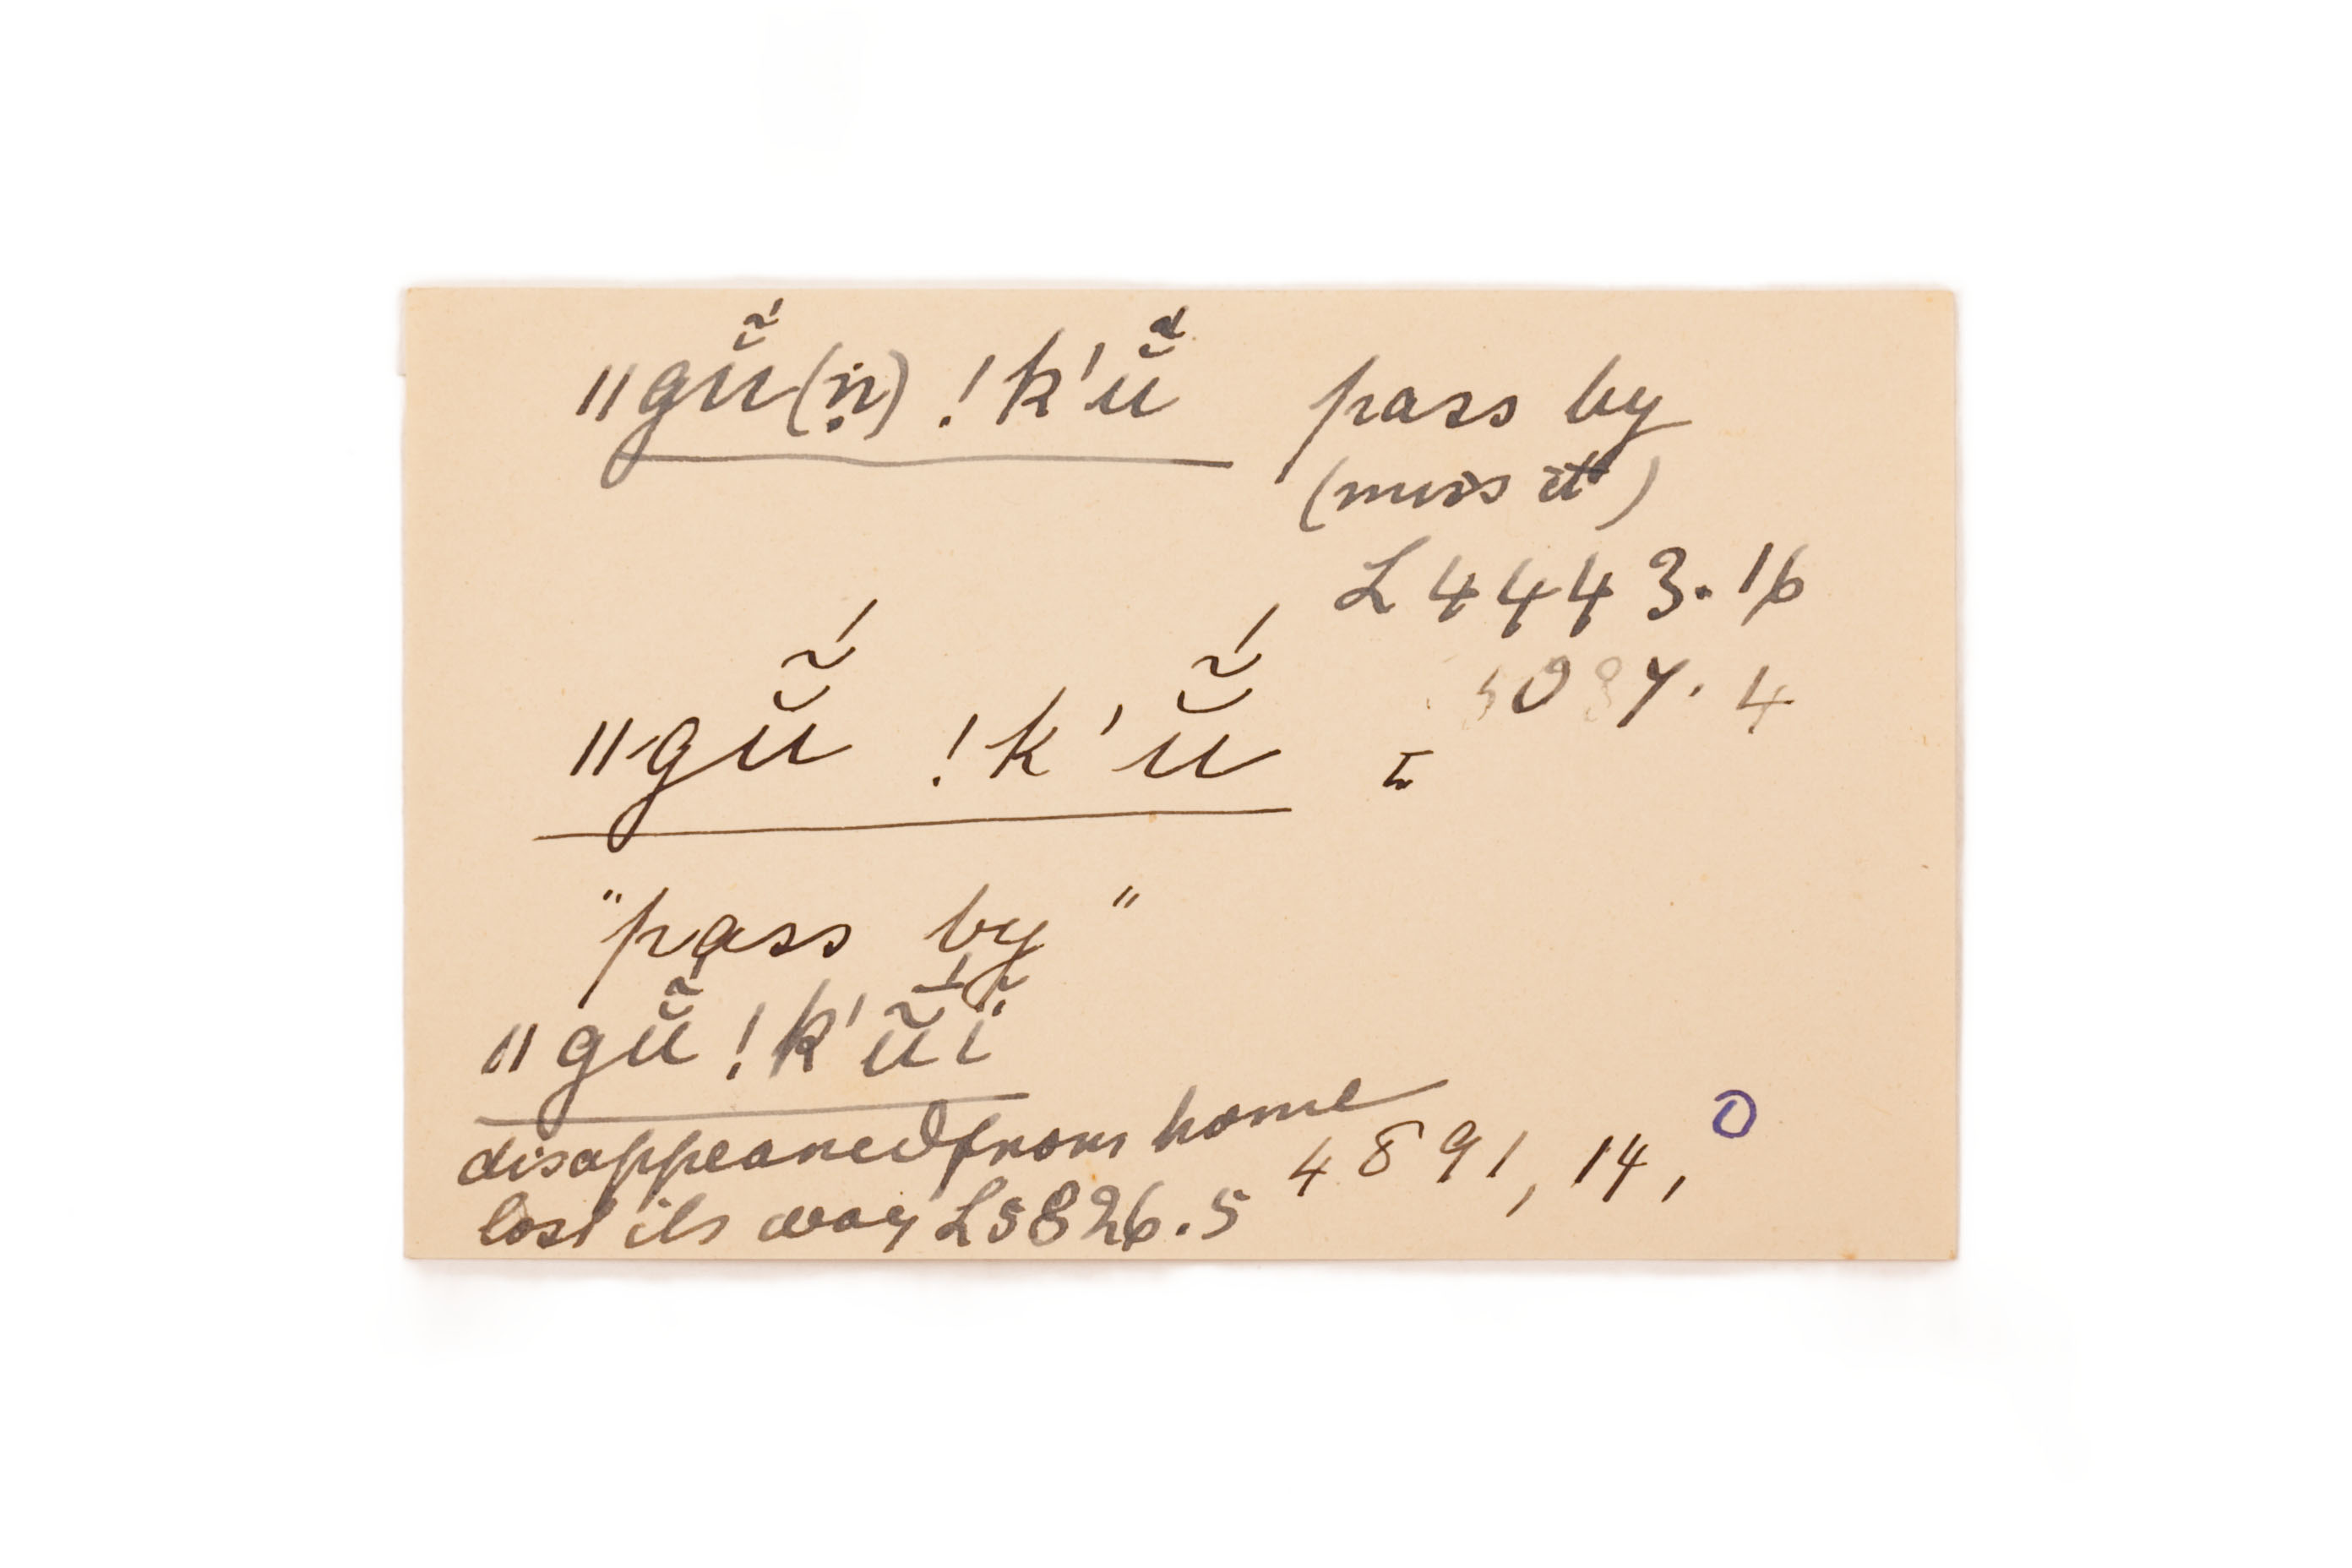 ǁgŭ̃́(ṇ̇) !k'ŭ̃́ pass by
(miss it)
L 4443.16
5037.4
ǁgŭ̃́ !k'ŭ̃́
"pass by"
ǁgŭ̃́ !k'ū̃́ĩ
disappeared from home
4891, 14,
lost its way L5826.5